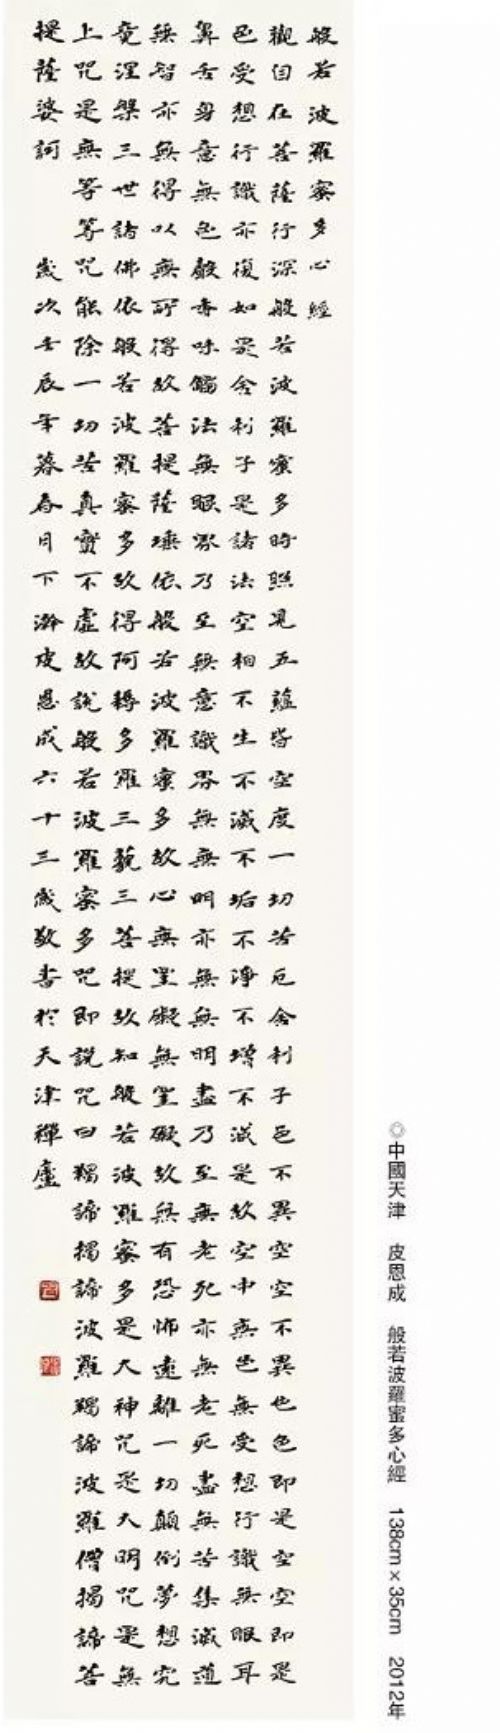 般若波羅蜜多心經
觀自在菩薩行深般若波羅蜜多時照見五蘊皆空度一切苦厄舍利子色不異空空不異色色即是空空即是
色受想行識亦復如是舍利子是諸法空相不生不滅不垢不淨不增不減是故空中無色無受想行識無眼耳
鼻舌身意無色聲香味觸法無眼界乃至無意識界無無明亦無無明盡乃至無老死亦無老死盡無苦集滅道
無智亦無得以無所得故菩提薩埵依般若波羅蜜多故心無罣礙無罣礙故無有恐怖遠離一切顛倒夢想究
竟涅槃三世諸佛依般若波羅蜜多故得阿耨多羅三藐三菩提故知般若波羅蜜多是大神咒是大明咒是無
上咒是無等等咒能除一切苦真實不虛故說般若波羅蜜多咒即說咒曰揭諦揭諦波羅揭諦波羅僧揭諦菩
提薩婆訶 歲次壬辰年暮春月下澣皮恩成六十三歲敬書於天津禪廬
◎中國天津 皮恩成 般若波羅蜜多心經 138cm×35cm 2012年